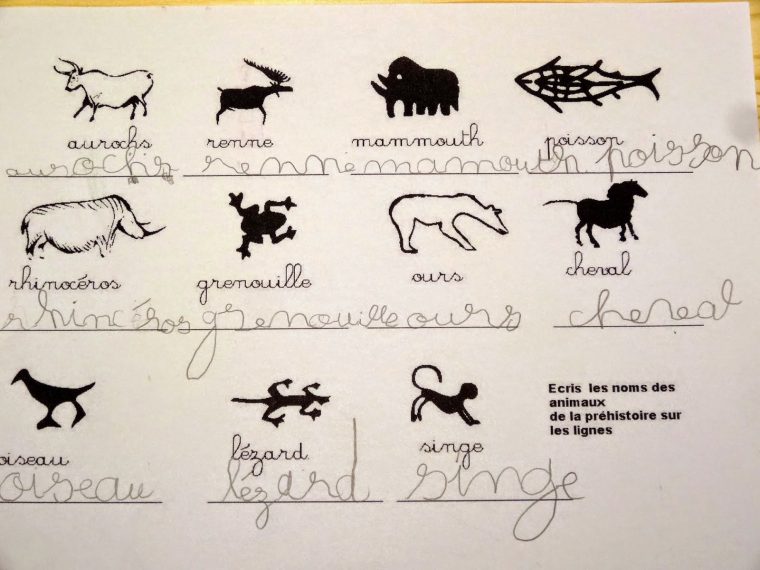 aurochs renne mammouth poisson
aurochs renne mamouth poisson
rhinocéros grenouille ours cheval
rhincéros grenouille ours chereal
oiseau lézard singe
oiseau lézard singe
Ecris les noms des
animaux
de la préhistoire sur
les lignes